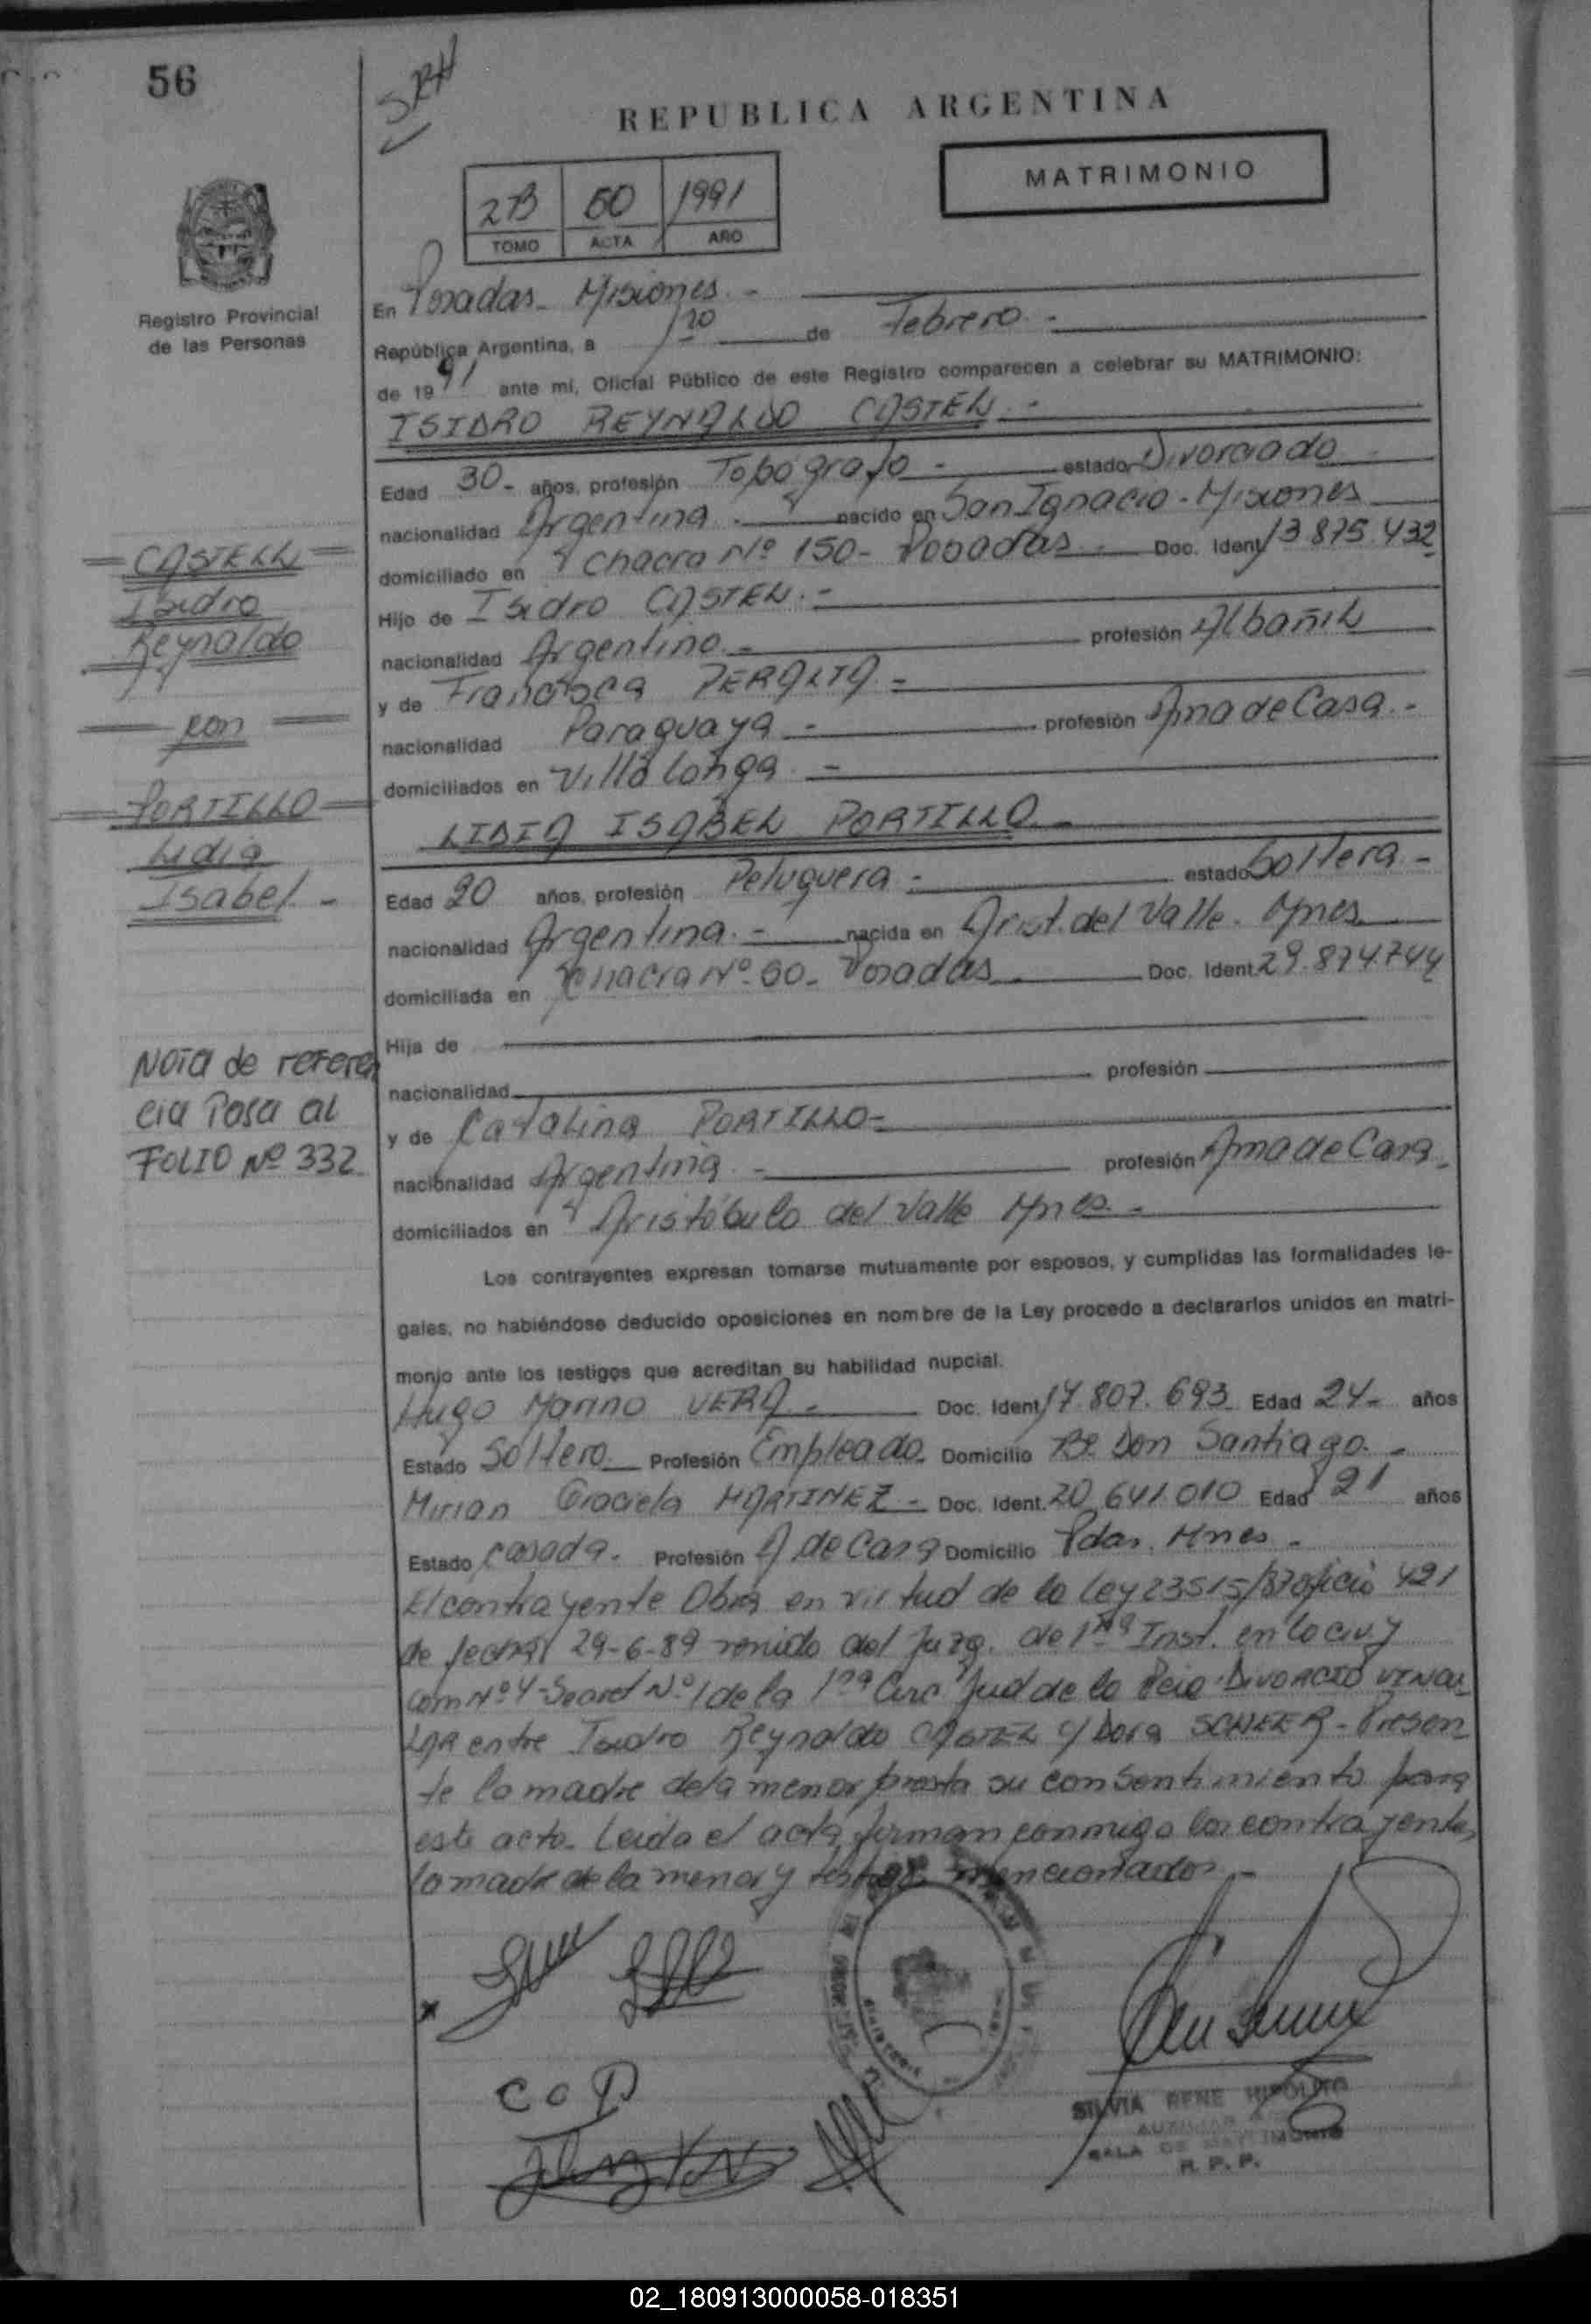 56
SRH
REPUBLICA ARGENTINA
MATRIMONIO
2B 60 1991
TOMO ACTA AÑO
Registro Provincial
de las Personas
En Posadas - Misiones. -
República Argentina, a 20 de Febrero -
de 1991 ante mí, Oficial Público de este Registro comparecen a celebrar su MATRIMONIO:
ISIDRO REYNALDO CASTEL. -
Edad 30 - años, profesión Topógrafo - estado Divorciado -
nacionalidad Argentina. - nacido en San Ignacio - Misiones
domiciliado en Chacra Nº 150 - Posadas - Doc. Ident. 13.875.432
Hijo de Isidro CASTEL. -
nacionalidad Argentino - profesión Albañil
y de Francisca PERALTA -
nacionalidad Paraguaya - profesión Ama de Casa. -
domiciliados en Villa Longa -
CASTELL
Isidro
Reynaldo
con
PORTILLO
Lidia
Isabel. -
LIDIA ISABEL PORTILLO -
Edad 20 años, profesión Peluquera - estado Soltera -
nacionalidad Argentina. - nacida en Arist. del Valle. Mnes
domiciliada en Chacra Nº 60 - Posadas - Doc. Ident. 29.874.744
Hija de
nacionalidad profesión
y de Catalina PORTILLO -
nacionalidad Argentina - profesión Ama de Casa -
domiciliados en Aristóbulo del Valle Mnes. -
NOTA de referen
cia Pasa al
FOLIO Nº 332
Los contrayentes expresan tomarse mutuamente por esposos, y cumplidas las formalidades le-
gales, no habiéndose deducido oposiciones en nombre de la Ley procedo a declararlos unidos en matri-
monio ante los testigos que acreditan su habilidad nupcial.
Hugo Marino VERA - Doc. Ident. 17.807.693 Edad 24 - años
Estado Soltero Profesión Empleado Domicilio Bº Don Santiago. -
Mirian Graciela MARTINEZ - Doc. Ident. 20.641.010 Edad 21 años
Estado Casada. Profesión A de Casa Domicilio Pdas. Mnes -
El contrayente Obra en virtud de la Ley 23515/87 oficio 421
de fecha 29-6-89 venido del Juzg. de 1ra Inst. en lo civ. y
com Nº 4 - Secret Nº 1 de la 1ra Circ Jud de la Pcia - DIVORCIO VINCU-
LAR entre Isidro Reynaldo CASTEL c/ Dora - Presen-
te la madre de la menor presta su consentimiento para
este acto - Leida el acta, firman conmigo los contrayentes,
la madre de la menor y testigos mencionados -
C o P
SILVIA RENE HIPOLITO
AUXILIAR
SALA DE MATRIMONIO
R. P. P.
02_180913000058-018351